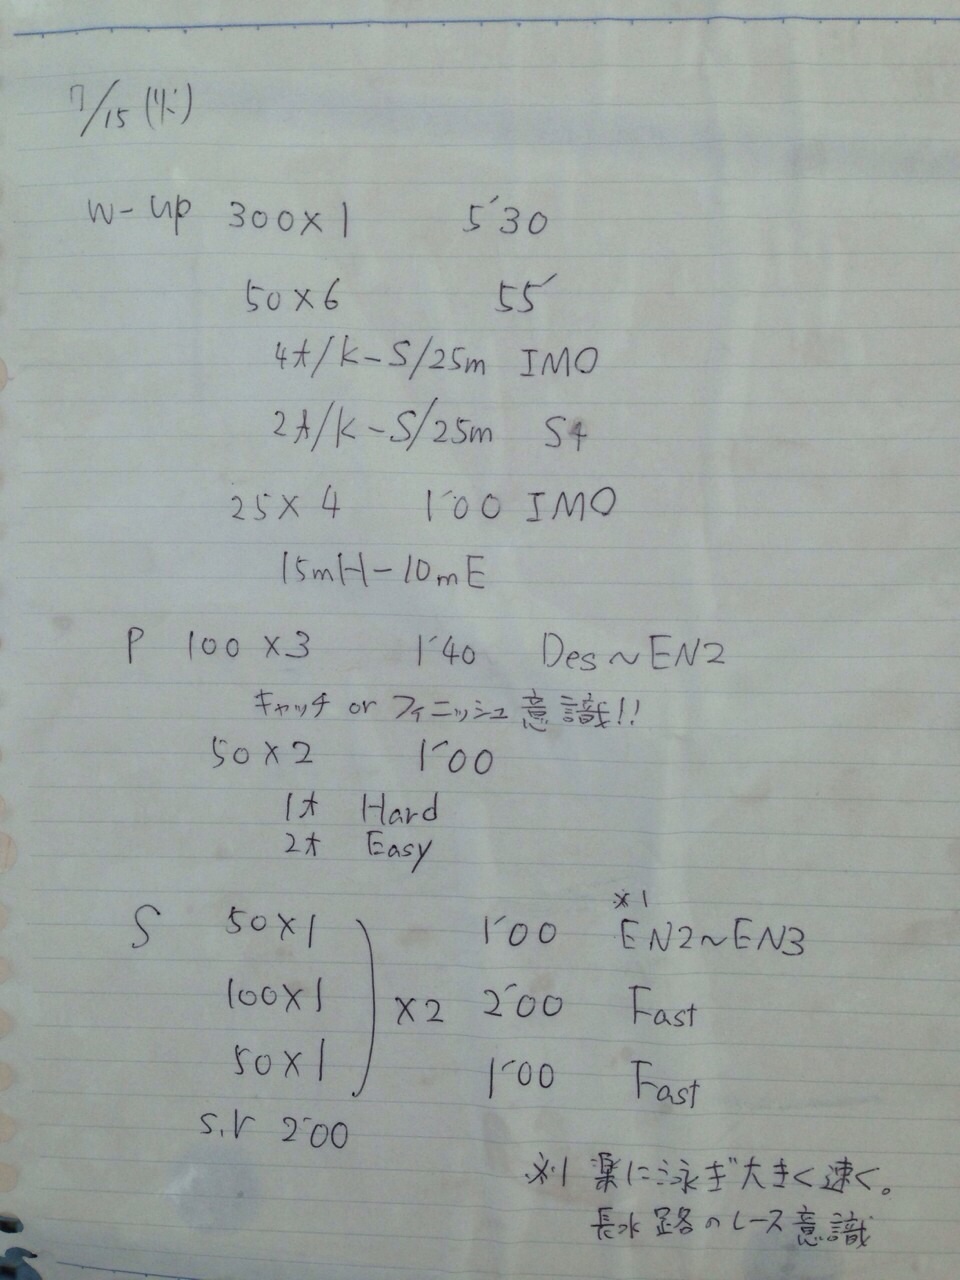 7/15 (火)
W-up 300×1 5'30
50×6 55'
4t/K-S/25m IMO
2t/K-S/25m S4
25×4 1'00 IMO
15mH-10mE
P 100×3 1'40 Des~EN2
キャッチ or フィニッシュ意識!!
50×2 1'00
1t Hard
2t Easy
※1
S 50×1 1'00 EN2~EN3
100×1 ×2 2'00 Fast
50×1 1'00 Fast
S.r 2'00
※1 楽に泳ぎ大きく速く。
長水路のレース意識